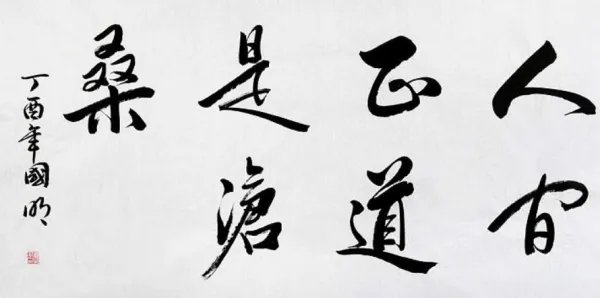 人間
正道
是滄
桑
丁酉年國明